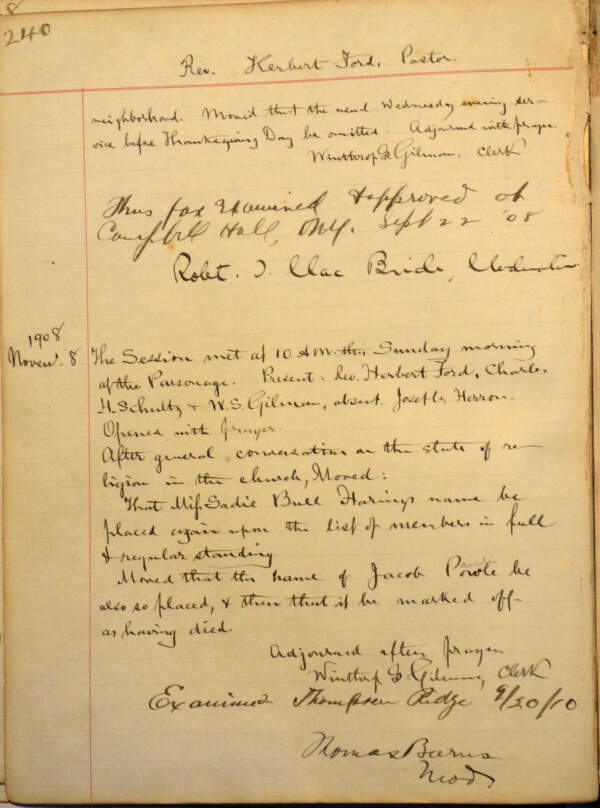 8
240
Rev. Herbert Ford, Pastor.
neighborhood. Moved that the usual Wednesday evening ser-
vice before Thanksgiving Day be omitted. Adjourned with prayer.
Winthrop S. Gilman, Clerk
Thus far Examined & approved at
Campbell Hall, N.Y. Sept 22 '08
Robt. Mac Bride, Moderator
1908
Novem. 8
The Session met at 10 A.M. this Sunday morning
at the Parsonage. Present: Rev. Herbert Ford, Charles
H. Schultz & W. S. Gilman, absent Joseph Herron.
Opened with prayer.
After general conversation on the state of re-
ligion in the church, Moved:
That Miss Sadie Bull Haring's name be
placed again upon the list of members in full
& regular standing
Moved that the name of Jacob be
also so placed, & then that it be marked off
as having died.
Adjourned after prayer
Winthrop S. Gilman, Clerk
Examined Thompson Ridge 9/20/10
Thomas Burns
Mod.